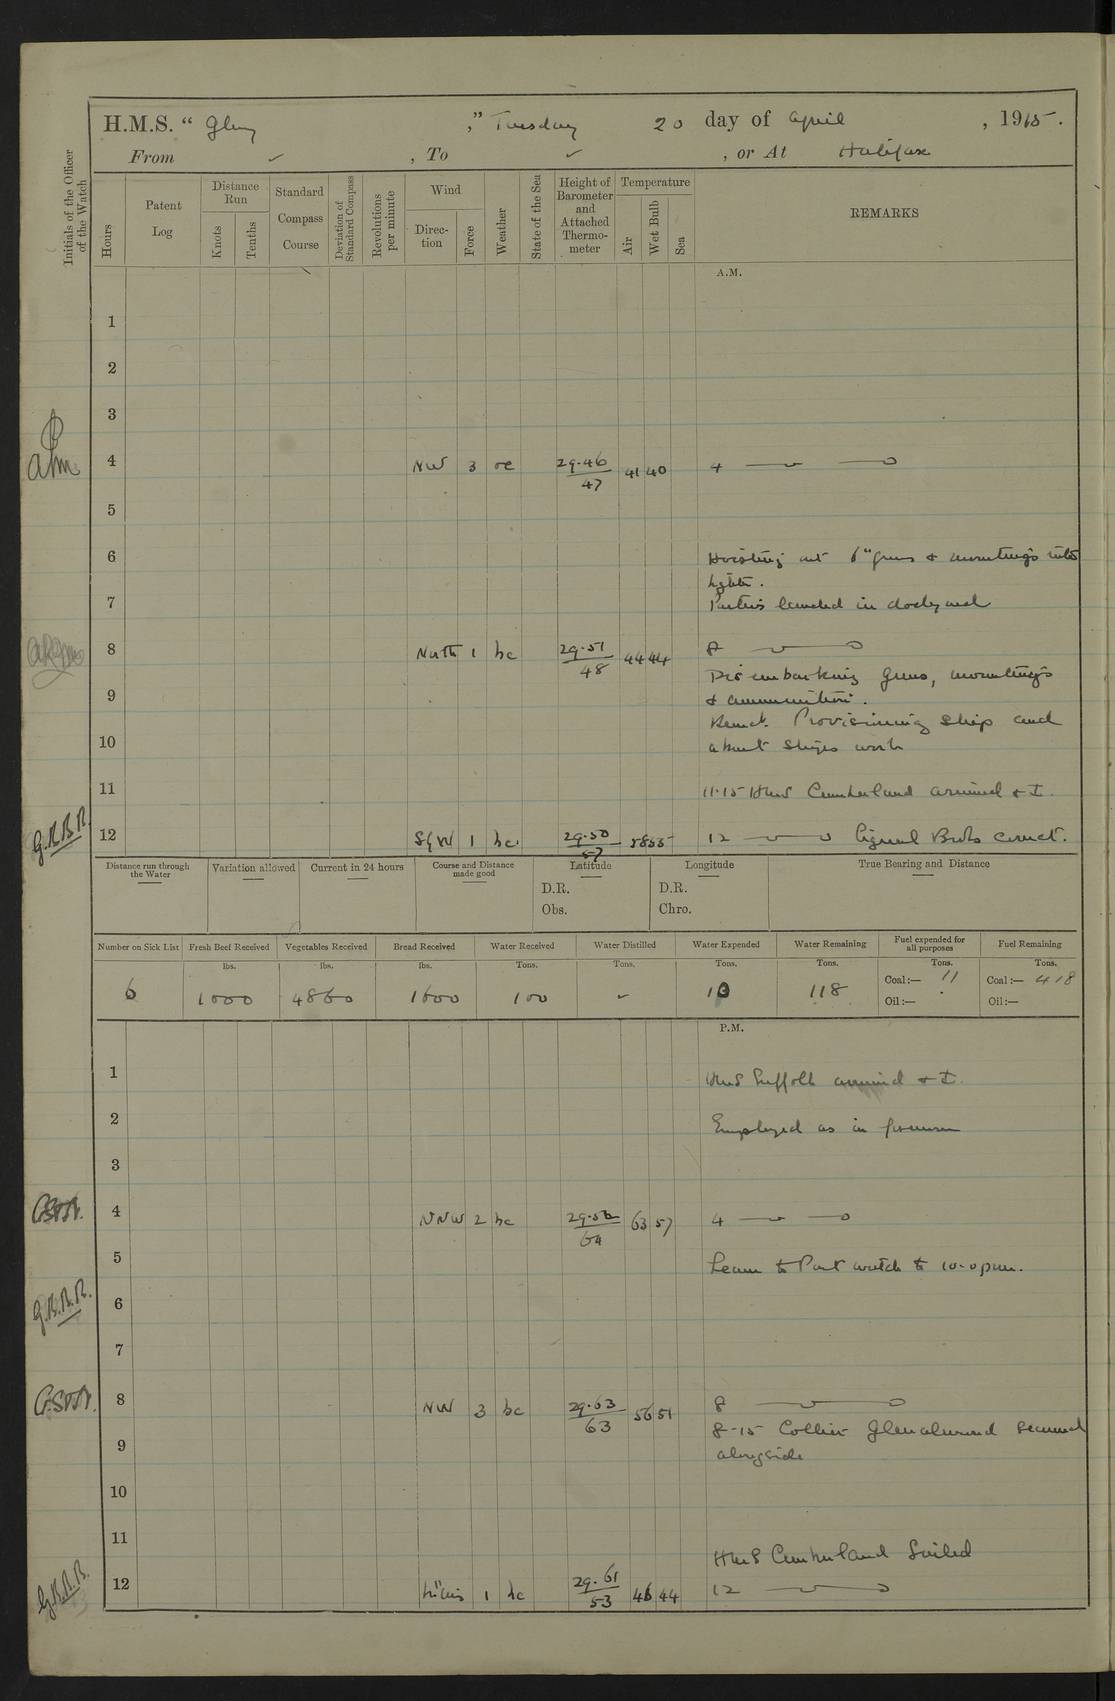 H.M.S. “ Glory ,” Tuesday 20 day of April , 1915.
From ✓ , To ✓ , or At Halifax
Initials of the Officer of the Watch
Hours
Patent Log
Distance Run
Knots
Tenths
Standard Compass Course
Deviation of Standard Compass
Revolutions per minute
Wind
Direc-tion
Force
Weather
State of the Sea
Height of Barometer and Attached Thermo-meter
Temperature
Air
Wet Bulb
Sea
REMARKS
A.M.
1
2
3
4 NW 3 oc 29.46 47 41 40 4
5
6 Hoisting out 6" guns & mountings into
lighter.
7 Parties landed in dockyard
8 North 1 bc 29.51 48 44 44 8
Disembarking guns, mountings
9 & ammunition.
Remdr. Provisioning ship and
10 about ships work
11 11.15 HMS Cumberland arrived & I.
G.R.B.R. 12 SW 1 bc 29.50 57 58 55 12 Signal Books correct.
Distance run through the Water
Variation allowed
Current in 24 hours
Course and Distance made good
Latitude
D.R.
Obs.
Longitude
D.R.
Chro.
True Bearing and Distance
Number on Sick List
Fresh Beef Received
Vegetables Received
Bread Received
Water Received
Water Distilled
Water Expended
Water Remaining
Fuel expended for all purposes
Fuel Remaining
lbs. lbs. lbs. Tons. Tons. Tons. Tons. Tons. Tons.
6 1000 4860 1600 100 ✓ 10 118 Coal:— 11 Coal:— 418
Oil:— Oil:—
P.M.
1 HMS Suffolk arrived & I.
2 Employed as in forenoon
3
4 NNW 2 bc 29.56 64 63 57 4
5 Leave to Port watch to 10.0 pm.
G.R.B.R. 6
7
8 NW 3 bc 29.63 63 56 51 8
8.15 Collier Glenalmond secured
9 alongside
10
11
HMS Cumberland Sailed
G.R.B.R. 12 1 bc 29.61 53 46 44 12